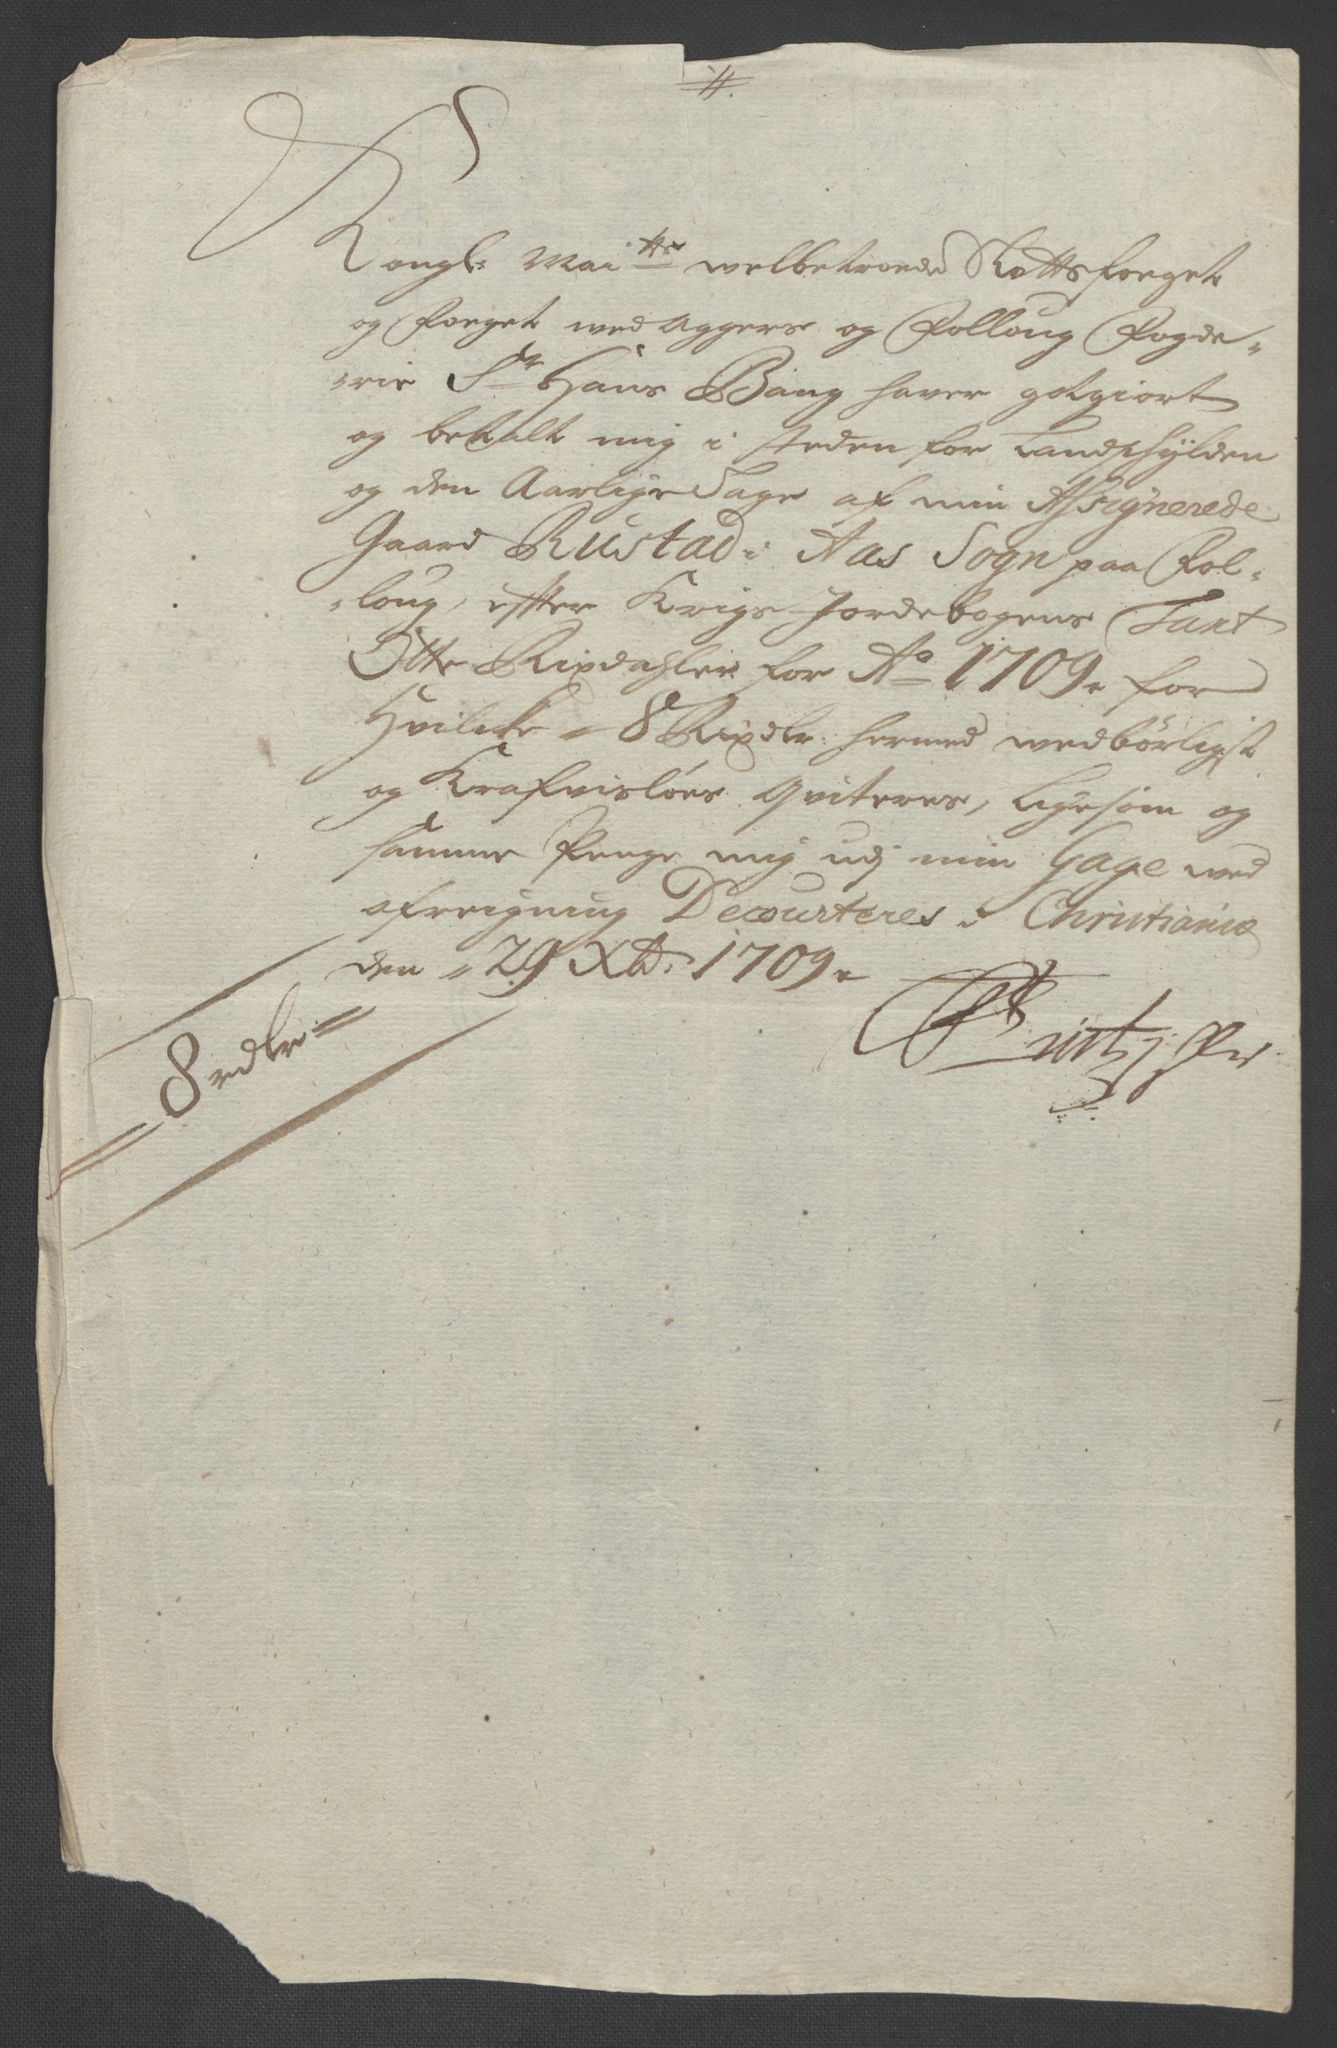 Kongl: Mai ttz welbetroede Rettsfoeget
og foeget ved Aggers og Folloug Fogde-
-rie Sr Hans Bang haver gotgiort
og betalt mig i steden for Landschÿlden
og den Aarlige Tage af min Assignerede
Gaard Rustad i Aas Sogn paa Fol-
-loug, efter Krigs Jordebogens Taxt
Otte Rixdahler for Ao 1709, for
Hvilcke 8 Rixdlr: hermed wedbörligst
og Krafvislöes Qviteres, ligesom og
samme Penge mig udj min Gage ved
afreigning Decourteres. Christiania
den 29 Xbr: 1709,
8 rdlr